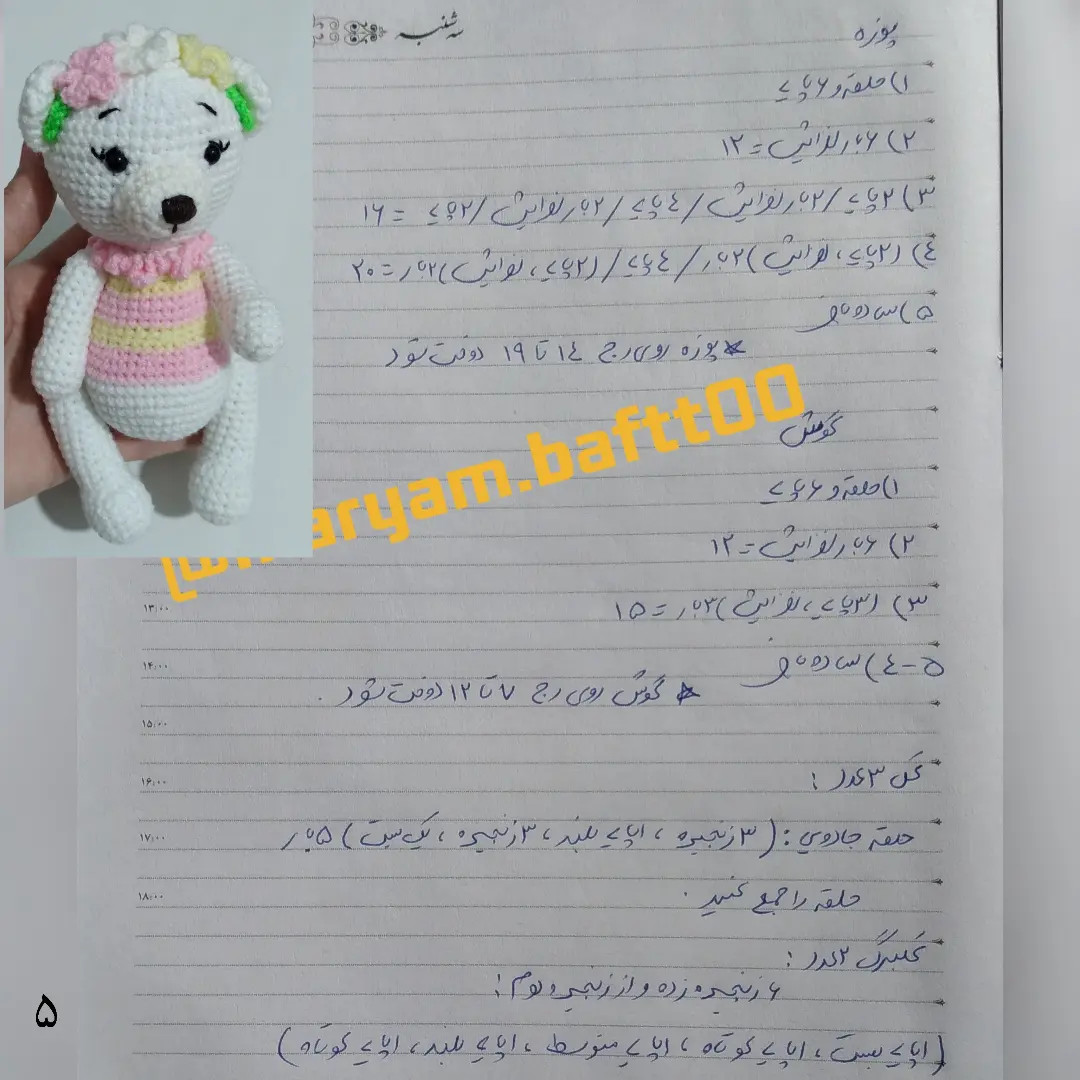 سه شنبه
پوزه
۱) حلقه و ۶ پایه
۲) ۶ بار افزایش = ۱۲
۳) ۲ پایه / ۲ بار افزایش / ٤ پایه / ۲ بار افزایش / ۲ پایه = ۱۶
٤) (۲ پایه، افزایش) ۲ بار / ٤ پایه / (۲ پایه، افزایش) ۲ بار = ۲۰
۵) ساده بافی
* پوزه روی رج ۱٤ تا ۱۹ دوخت شود
گوش
۱) حلقه و ۶ پایه
۲) ۶ بار افزایش = ۱۲
۳) (۳ پایه، افزایش) ۳ بار = ۱۵
٤-۵) ساده بافی
* گوش روی رج ۷ تا ۱۲ دوخت شود.
گل ۳ عدد:
حلقه جادویی: (۳ زنجیره، ۱ پایه بلند، ۳ زنجیره، یک بست) ۵ بار
حلقه را جمع کنید.
گلبرگ ۲ عدد:
۶ زنجیره زده و از زنجیره دوم:
(۱ پایه بست، ۱ پایه کوتاه، ۱ پایه متوسط، ۱ پایه بلند، ۱ پایه کوتاه)
@maryam.baftt00
۱۳:۰۰
۱۴:۰۰
۱۵:۰۰
۱۶:۰۰
۱۷:۰۰
۱۸:۰۰
۵